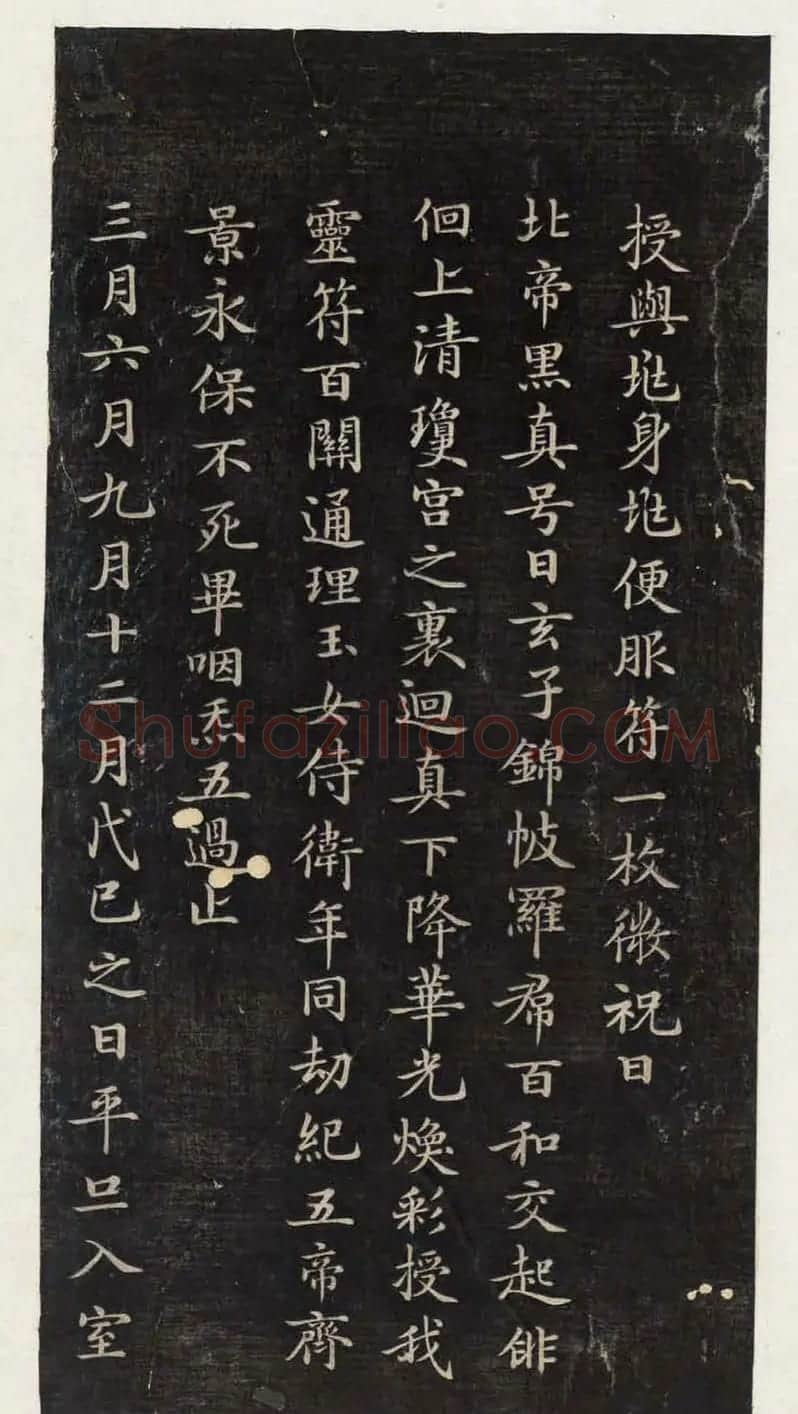 授與垗身垗便服符一枚微祝曰
北帝黑真号曰玄子錦帔羅帬百和交起俳
佪上清瓊宫之裏迴真下降華光煥彩授我
靈符百關通理玉女侍衛年同劫紀五帝齊
景永保不死畢咽炁五過止
三月六月九月十二月戊巳之日平旦入室
Shufaziliao.COM